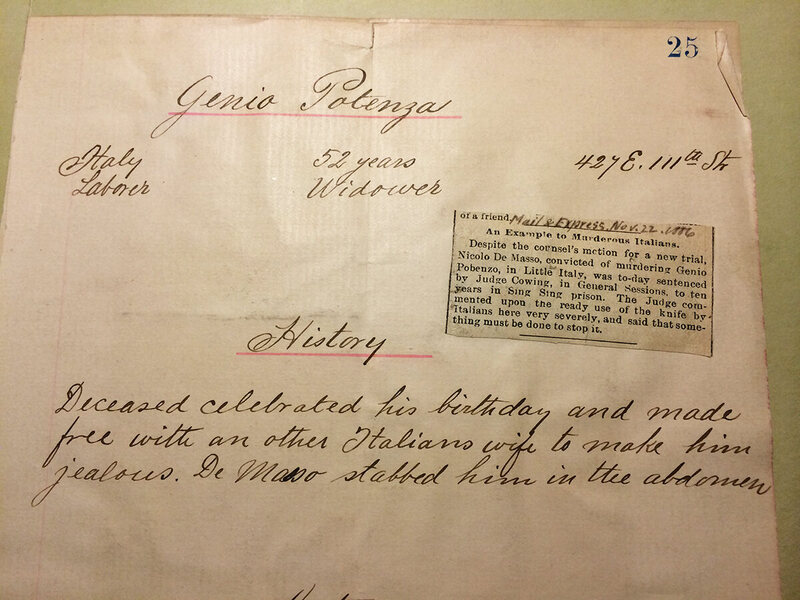 25
Genio Potenza
Italy 52 years 427 E. 111th St
Laborer Widower
of a friend. Mail & Express. Nov. 22. 1886
An Example to Murderous Italians.
Despite the counsel's motion for a new trial,
Nicolo De Masso, convicted of murdering Genio
Pobenzo, in Little Italy, was to-day sentenced
by Judge Cowing, in General Sessions, to ten
years in Sing Sing prison. The Judge com-
mented upon the ready use of the knife by
Italians here very severely, and said that some-
thing must be done to stop it.
History
Deceased celebrated his birthday and made
free with an other Italians wife to make him
jealous. De Masso stabbed him in the abdomen